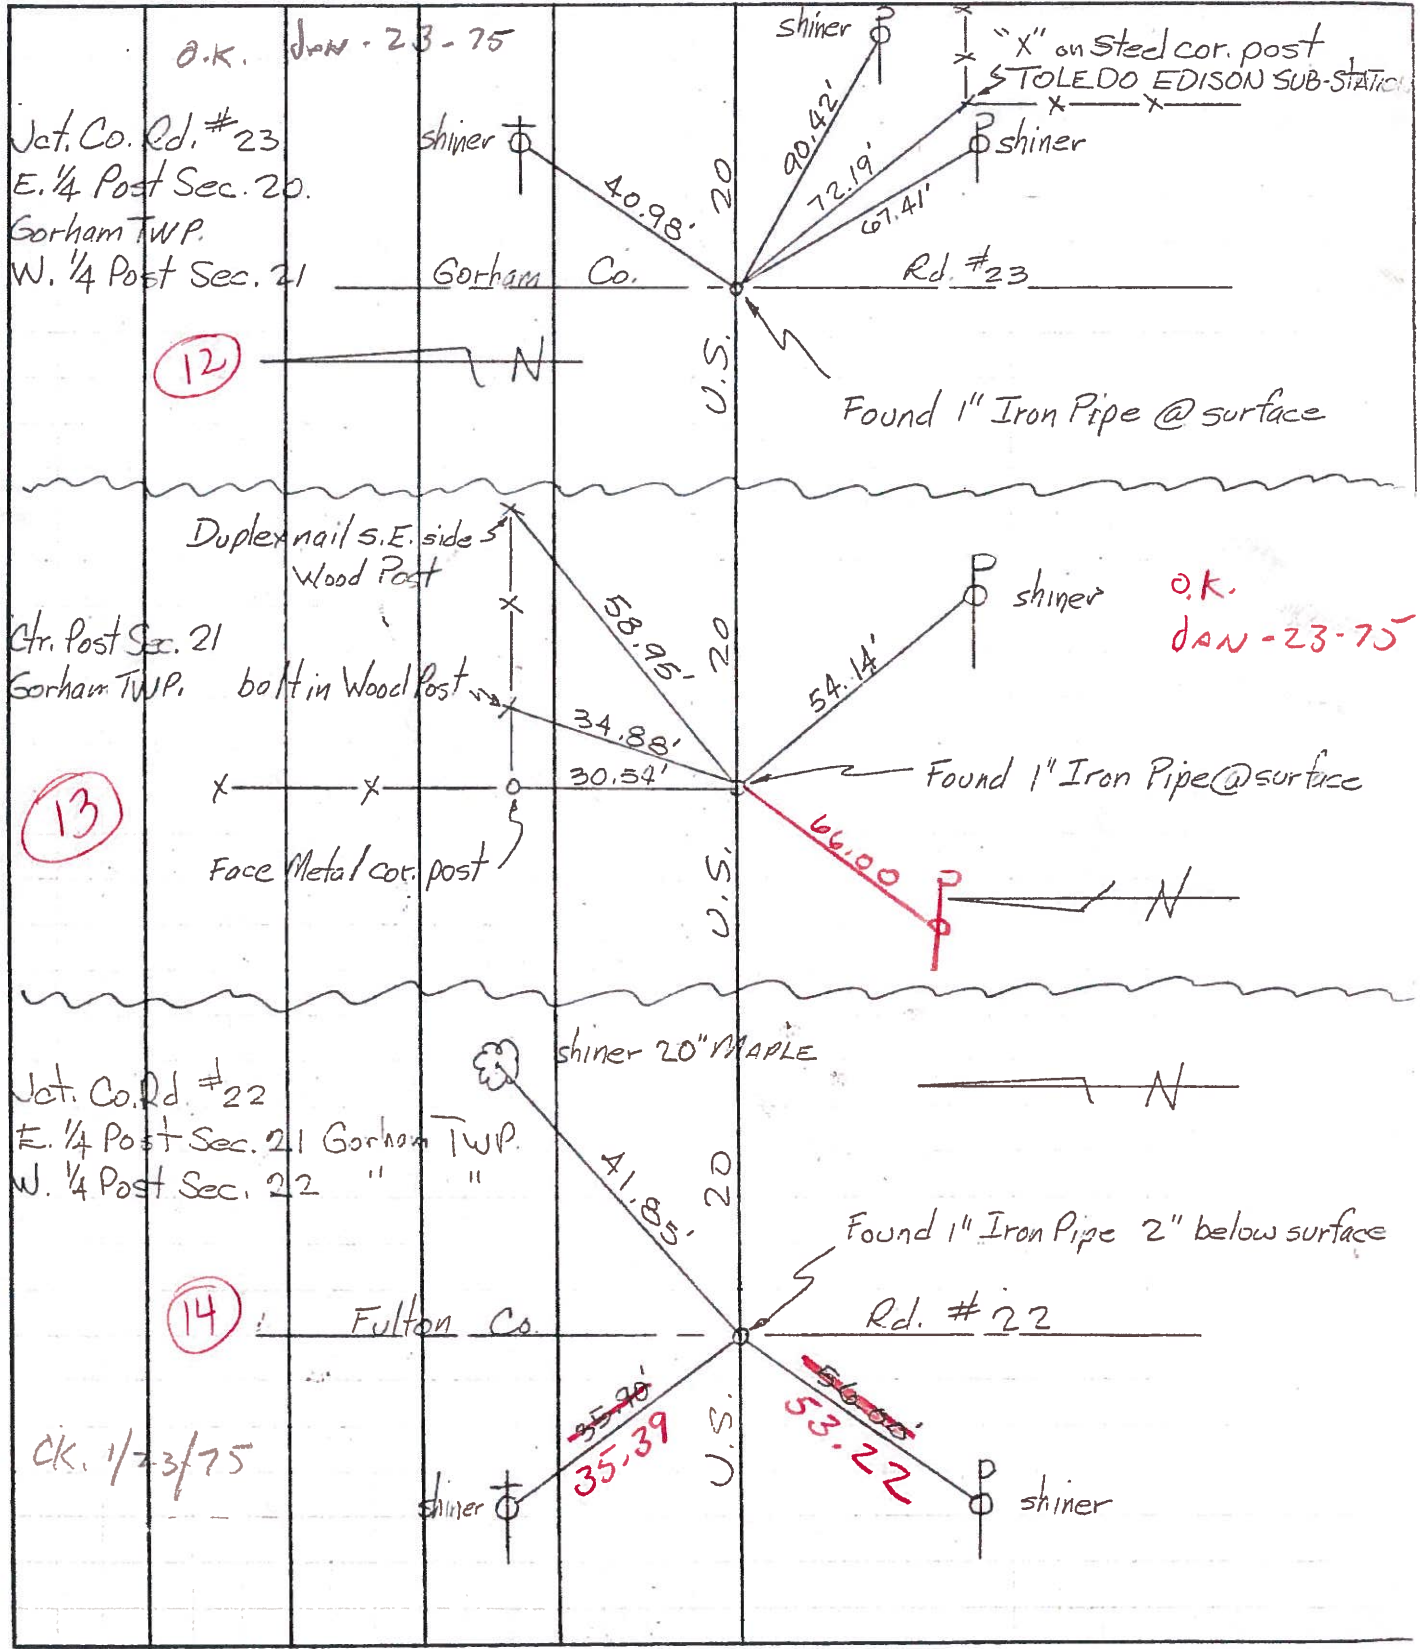 O.K. JAN-23-75
shiner
"X" on Steel cor. post
TOLEDO EDISON SUB-STATION
Jct. Co. Rd. #23
E. 1/4 Post Sec. 20.
Gorham TWP.
W. 1/4 Post Sec. 21
shiner
shiner
40.98'
90.42'
72.19'
67.41'
U.S. 20
Gorham Co. Rd. #23
12
N
Found 1" Iron Pipe @ surface
Duplex nail S.E. side
Wood Post
Ctr. Post Sec. 21
Gorham TWP.
bolt in Wood Post
58.95'
34.88'
30.54'
54.14'
shiner
O.K.
JAN-23-75
U.S. 20
Found 1" Iron Pipe @ surface
13
Face Metal cor. post
66.00
N
shiner 20" MAPLE
Jct. Co. Rd. #22
E. 1/4 Post Sec. 21 Gorham TWP.
W. 1/4 Post Sec. 22 " "
N
41.85'
U.S. 20
Found 1" Iron Pipe 2" below surface
14
Fulton Co. Rd. #22
35.70'
35.39
53.22
CK. 1/23/75
shiner
shiner